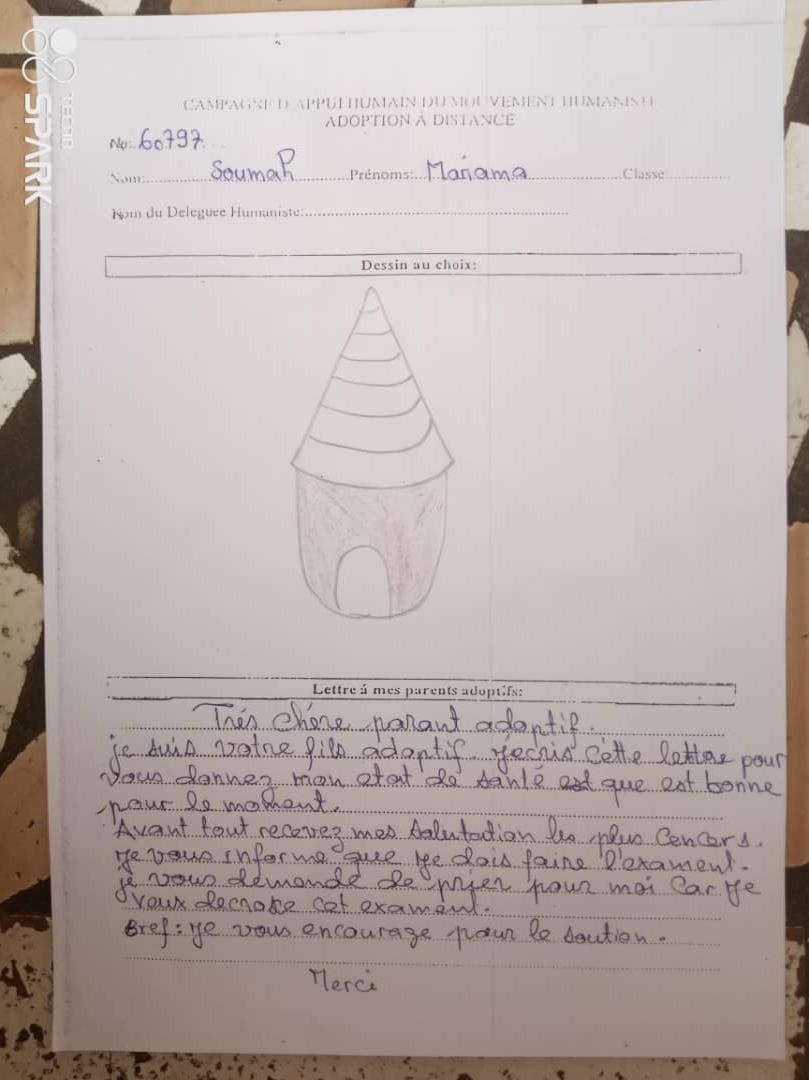 SPARK
TECNO
CAMPAGNE D'APPUI HUMAIN DU MOUVEMENT HUMANISTE
ADOPTION À DISTANCE
No: 60797
Nom: Soumah Prénoms: Mariama Classe:
Nom du Deleguee Humaniste:
Dessin au choix:
Lettre á mes parents adoptifs:
Trés chére parant adoptif.
je suis votre fils adoptif. j'ecris cette lettre pour
vous donnez mon etat de santé est que est bonne
pour le moment.
Avant tout recevez mes salutation les plus Cencers.
je vous informe que je dois faire l'exament.
je vous demande de prier pour moi Car je
veux decroke cet exament.
Bref: je vous encourage pour le soution.
Merci